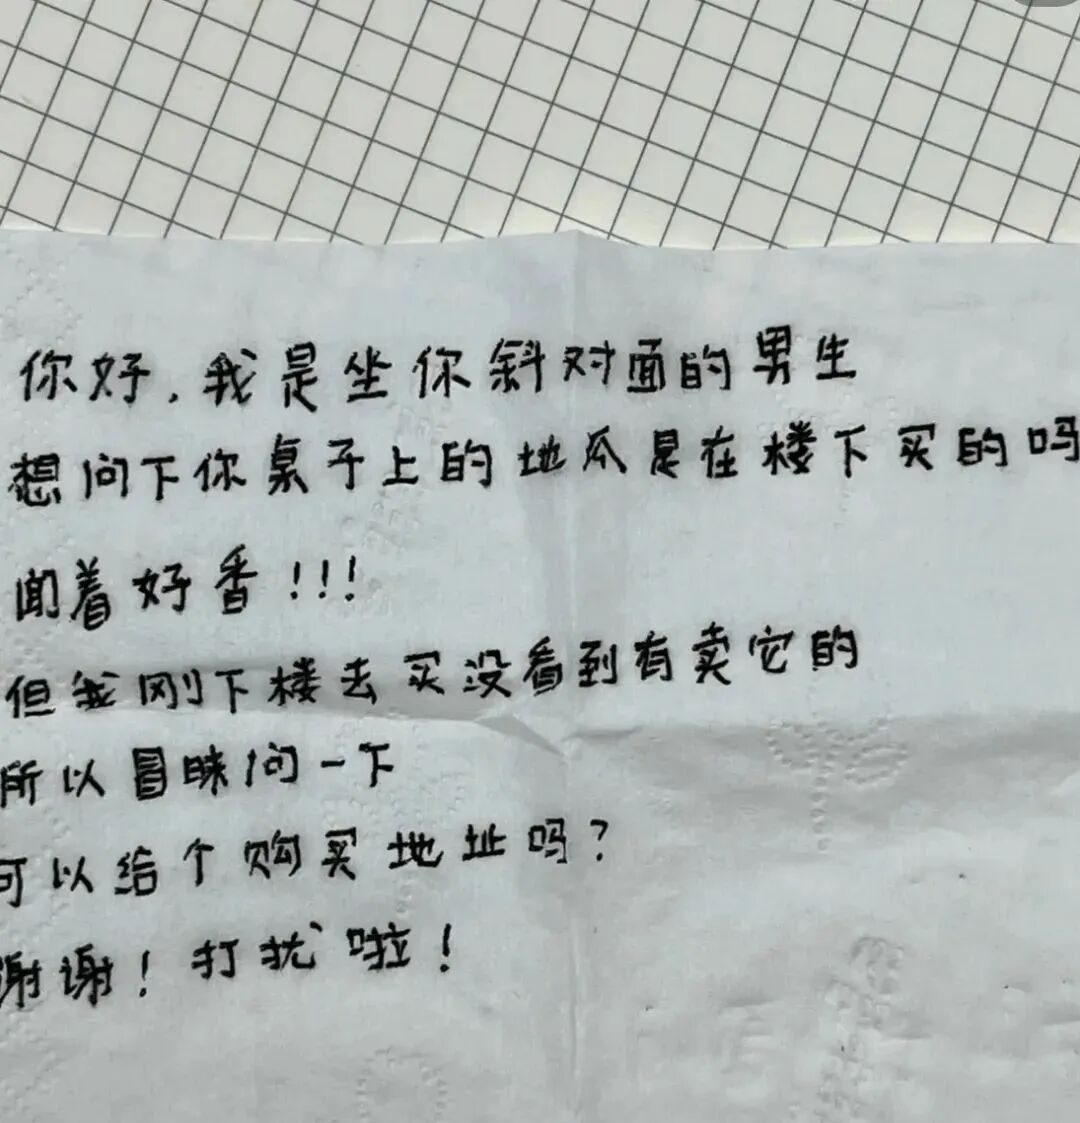 你好，我是坐你斜对面的男生
想问下你桌子上的地瓜是在楼下买的吗
闻着好香！！！
但我刚下楼去买没看到有卖它的
所以冒昧问一下
可以给个购买地址吗？
谢谢！打扰啦！